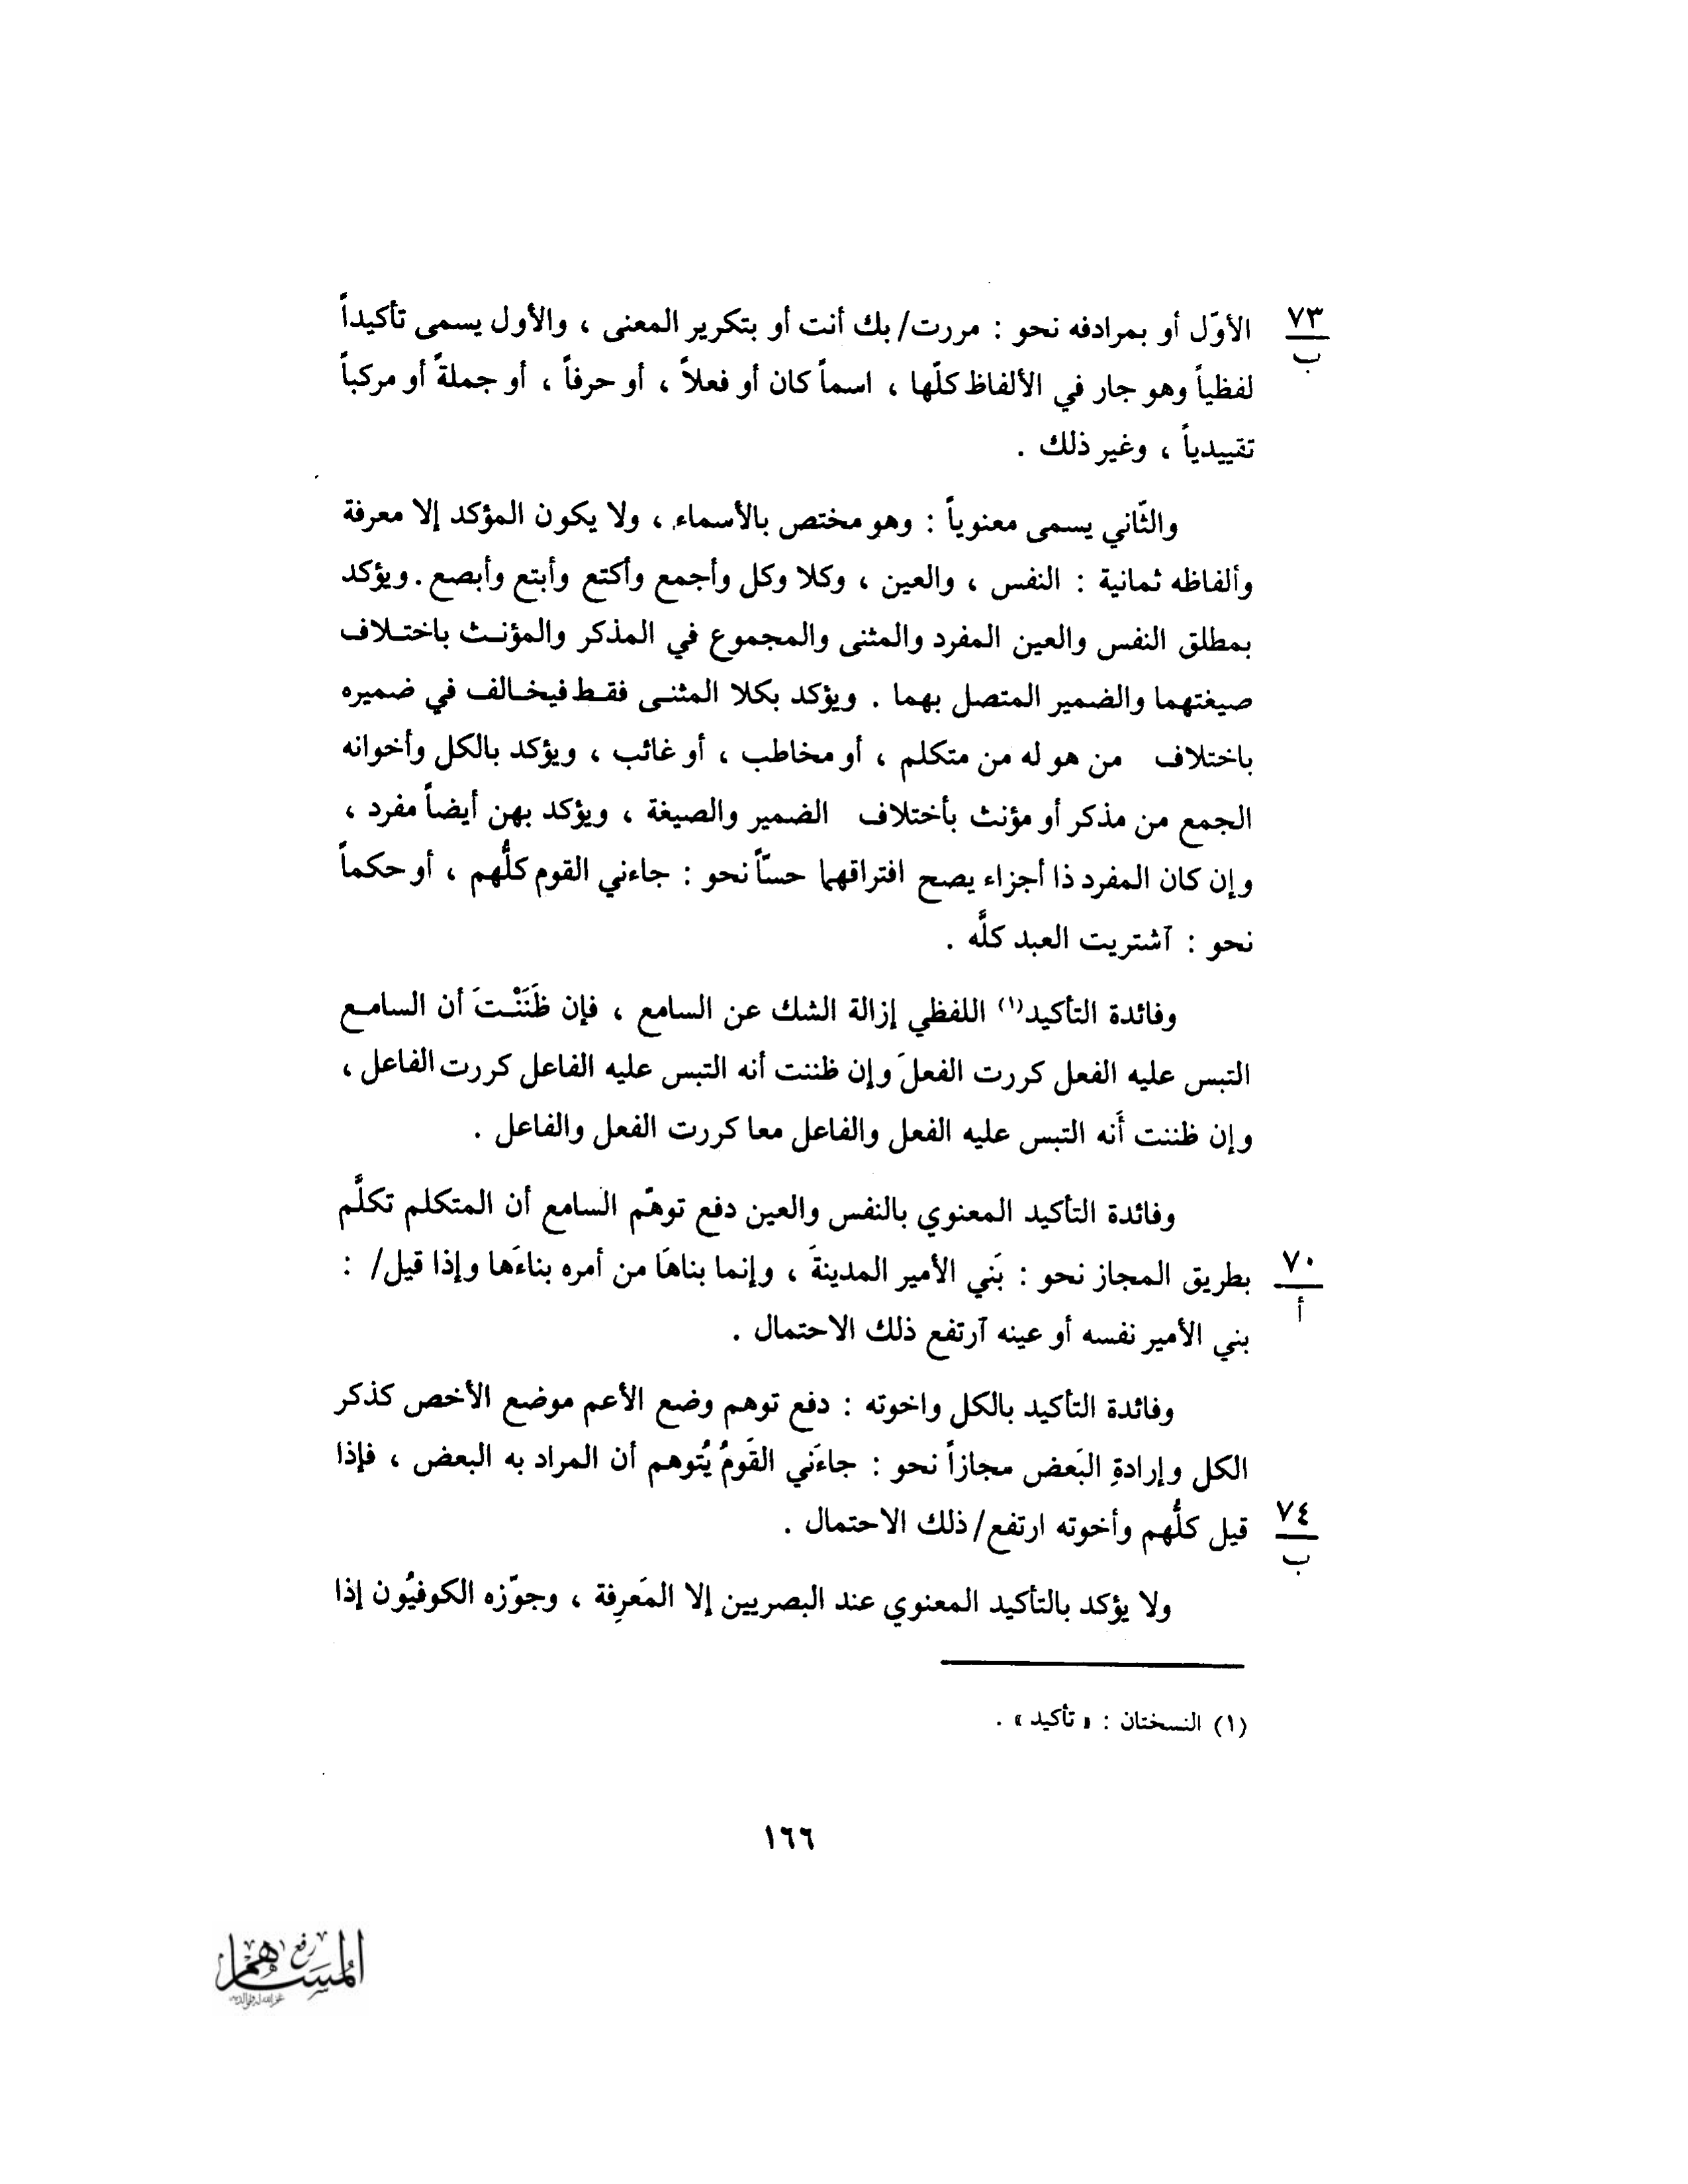 ٧٣
ب
الأوّل أو بمرادفه نحو : مررت/ بك أنت أو بتكرير المعنى ، والأول يسمى تأكيداً
لفظياً وهو جار في الألفاظ كلّها ، اسماً كان أو فعلاً ، أو حرفاً ، أو جملةً أو مركباً
تقييدياً ، وغير ذلك .
والثّاني يسمى معنوياً : وهو مختص بالأسماء ، ولا يكون المؤكد إلا معرفة
وألفاظه ثمانية : النفس ، والعين ، وكلا وكل وأجمع وأكتع وأبتع وأبصع . ويؤكد
بمطلق النفس والعين المفرد والمثنى والمجموع في المذكر والمؤنث باختلاف
صيغتهما والضمير المتصل بهما . ويؤكد بكلا المثنى فقط فيخالف في ضميره
باختلاف من هو له من متكلم ، أو مخاطب ، أو غائب ، ويؤكد بالكل وأخوانه
الجمع من مذكر أو مؤنث بأختلاف الضمير والصيغة ، ويؤكد بهن أيضاً مفرد ،
وإن كان المفرد ذا أجزاء يصح افتراقهما حسّاً نحو : جاءني القوم كلُّهم ، أو حكماً
نحو : آشتريت العبد كلَّه .
وفائدة التأكيد(١) اللفظي إزالة الشك عن السامع ، فإن ظَنَنْتَ أن السامع
التبس عليه الفعل كررت الفعلَ وإن ظننت أنه التبس عليه الفاعل كررت الفاعل ،
وإن ظننت أَنه التبس عليه الفعل والفاعل معا كررت الفعل والفاعل .
وفائدة التأكيد المعنوي بالنفس والعين دفع توهّم السامع أن المتكلم تكلَّم
٧٠
أ
بطريق المجاز نحو : بَني الأمير المدينةَ ، وإنما بناهَا من أمره بناءَها وإذا قيل/ :
بني الأمير نفسه أو عينه آرتفع ذلك الاحتمال .
وفائدة التأكيد بالكل واخوته : دفع توهم وضع الأعم موضع الأخص كذكر
الكل وإرادةِ البَعض مجازاً نحو : جاءَني القَومُ يُتوهم أن المراد به البعض ، فإذا
٧٤
ب
قيل كلُّهم وأخوته ارتفع/ ذلك الاحتمال .
ولا يؤكد بالتأكيد المعنوي عند البصريين إلا المَعرِفة ، وجوّزه الكوفيُون إذا
(١) النسختان : « تأكيد » .
١٦٦